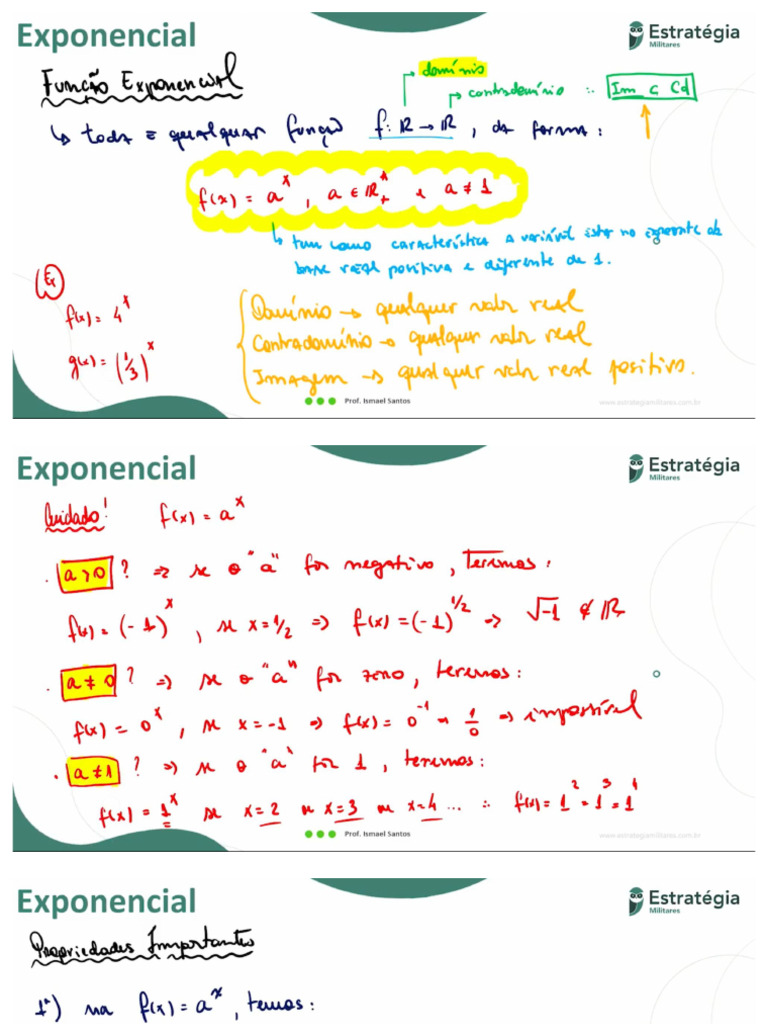 Exponencial
Estratégia
Militares
Função Exponencial
domínio
contradomínio ∴ Im ⊂ Cd
↳ toda e qualquer função f: ℝ → ℝ, da forma:
f(x) = aˣ, a ∈ ℝ₊* e a ≠ 1
↳ tem como característica a variável estar no expoente de
base real positiva e diferente de 1.
Ex
f(x) = 4ˣ
g(x) = (1/3)ˣ
Domínio → qualquer valor real
Contradomínio → qualquer valor real
Imagem → qualquer valor real positivo.
Prof. Ismael Santos
www.estrategiamilitares.com.br
Exponencial
Estratégia
Militares
Cuidado! f(x) = aˣ
. a > 0 ? ⇒ se o "a" for negativo, teremos:
f(x) = (-1)ˣ, se x = 1/2 ⇒ f(x) = (-1)^(1/2) ⇒ √-1 ∉ ℝ
. a ≠ 0 ? ⇒ se o "a" for zero, teremos:
f(x) = 0ˣ, se x = -1 ⇒ f(x) = 0⁻¹ = 1/0 ⇒ impossível
. a ≠ 1 ? ⇒ se o "a" for 1, teremos:
f(x) = 1ˣ se x = 2 ou x = 3 ou x = 4 ... ∴ f(x) = 1² = 1³ = 1⁴
Prof. Ismael Santos
www.estrategiamilitares.com.br
Exponencial
Estratégia
Militares
Propriedades Importantes
1ª) na f(x) = aˣ, temos: